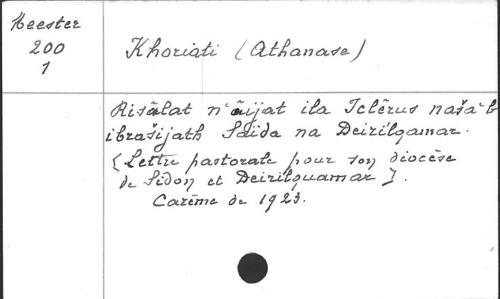 Heester
200
1
Khoriati (Athanase)
Risâlat n'âijat ila Iclêrus naša'b
ibrašijath Saïda na Deirilqamar.
[Lettre pastorale pour son diocèse
de Sidon et Deirilquamar].
Carême de 1923.